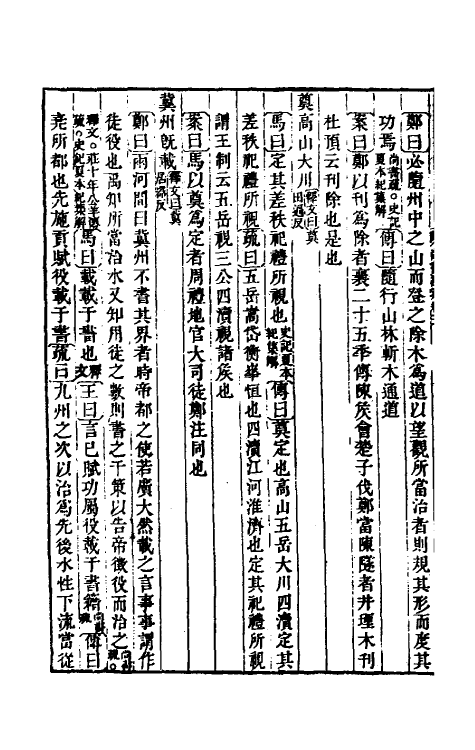 鄭曰必隨州中之山而登之除木爲道以望觀所當治者則規其形而度其
功焉尚書疏○史記夏本紀集解傳曰隨行山林斬木通道
案曰鄭以刊爲除者襄二十五年傳陳矦會楚子伐鄭當陳隧者井堙木刊
杜預云刊除也是也
奠高山大川釋文曰奠田遍反
馬曰定其差秩祀禮所視也史記夏本紀集解傳曰奠定也高山五岳大川四瀆定其
差秩祀禮所視疏曰五岳嵩岱衡華恒也四瀆江河淮濟也定其祀禮所視
謂王制云五岳視三公四瀆視諸矦也
案曰馬以奠爲定者周禮地官大司徒鄭注同也
冀州旣載釋文曰冀居器反
鄭曰兩河間曰冀州不書其界者時帝都之使若廣大然載之言事事謂作
徒役也禹知所當治水又知用徒之數則書之于策以告帝徵役而治之尚書疏○
釋文○莊十年公羊疏○史記夏本紀集解馬曰載載于書也釋文王曰言已賦功屬役載于書籍尚書疏傳曰
堯所都也先施貢賦役載于書疏曰九州之次以治爲先後水性下流當從